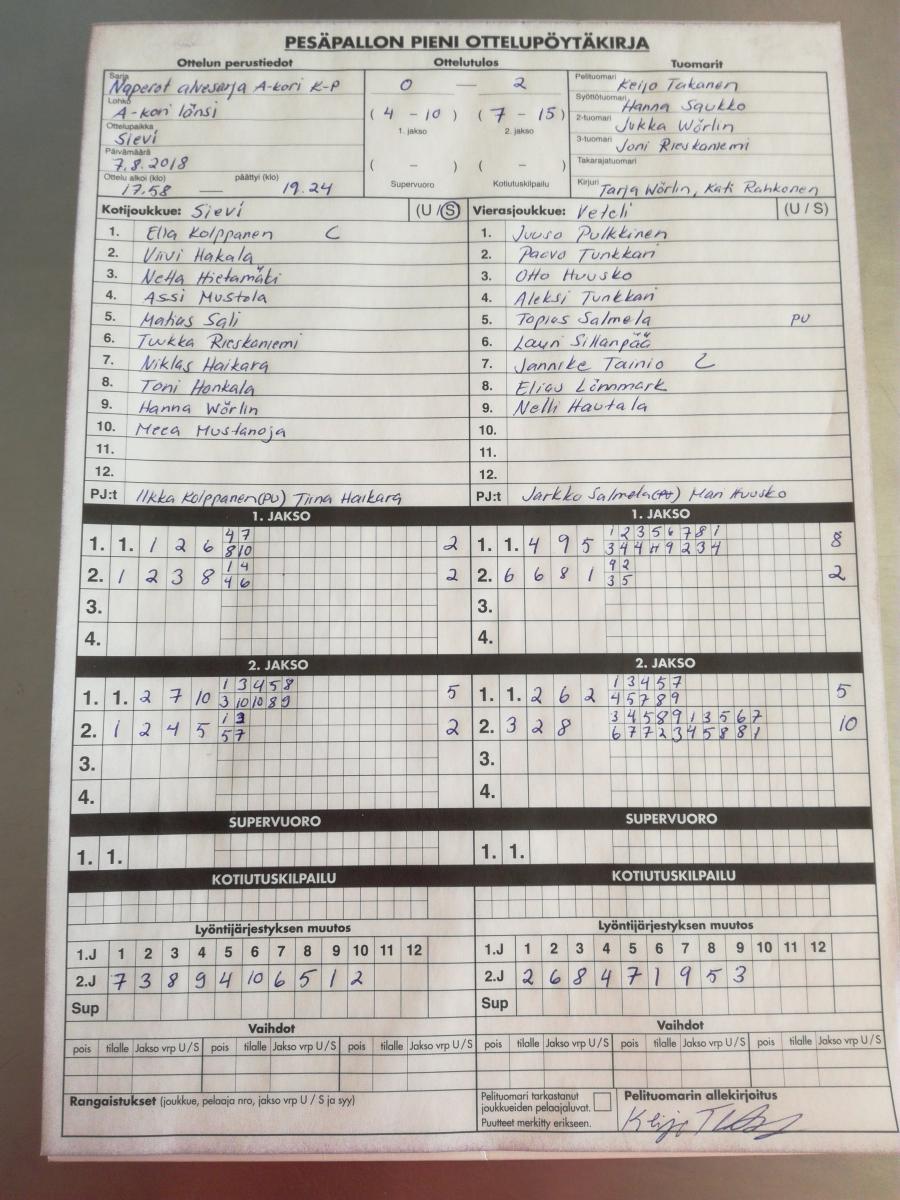 PESÄPALLON PIENI OTTELUPÖYTÄKIRJA
Ottelun perustiedot Ottelutulos Tuomarit
Sarja Naperot alvesarja A-kori K-P 0 — 2 Pelituomari Keijo Takanen
Lohko A-kori länsi ( 4 - 10 ) ( 7 - 15 ) Syöttötuomari Hanna Saukko
Ottelupaikka Sievi 1. jakso 2. jakso 2-tuomari Jukka Wörlin
Päivämäärä 7.8.2018 ( - ) ( - ) 3-tuomari Joni Rieskaniemi
Takarajatuomari
Ottelu alkoi (klo) 17.58 — päättyi (klo) 19.24 Supervuoro Kotiutuskilpailu Kirjuri Tarja Wörlin, Kati Rahkonen
Kotijoukkue: Sievi (U / S) Vierasjoukkue: Veteli (U / S)
1. Ella Kolppanen C 1. Juuso Pulkkinen
2. Viivi Hakala 2. Paavo Tunkkari
3. Netta Hietamäki 3. Otto Huusko
4. Assi Mustola 4. Aleksi Tunkkari
5. Matias Sali 5. Topias Salmela PU
6. Tuukka Rieskaniemi 6. Lauri Sillanpää
7. Niklas Haikara 7. Jannike Tainio C
8. Toni Honkala 8. Elias Lönnmark
9. Hanna Wörlin 9. Nelli Hautala
10. Meea Mustanoja 10.
11. 11.
12. 12.
PJ:t Ilkka Kolppanen (PU) Tiina Haikara PJ:t Jarkko Salmela Mari Huusko
1. JAKSO 1. JAKSO
4 7 1 2 3 5 6 7 8 1
1. 1. 1 2 6 8 10 2 1. 1. 4 9 5 3 4 4 4 9 2 3 4 8
1 4 9 2
2. 1 2 3 8 4 6 2 2. 6 6 8 1 3 5 2
3. 3.
4. 4.
2. JAKSO 2. JAKSO
1 3 4 5 8 1 3 4 5 7
1. 1. 2 7 10 3 10 10 8 9 5 1. 1. 2 6 2 4 5 7 8 9 5
1 3 3 4 5 8 9 1 3 5 6 7
2. 1 2 4 5 5 7 2 2. 3 2 8 6 7 7 2 3 4 5 8 8 1 10
3. 3.
4. 4.
SUPERVUORO SUPERVUORO
1. 1. 1. 1.
KOTIUTUSKILPAILU KOTIUTUSKILPAILU
Lyöntijärjestyksen muutos Lyöntijärjestyksen muutos
1.J 1 2 3 4 5 6 7 8 9 10 11 12 1.J 1 2 3 4 5 6 7 8 9 10 11 12
2.J 7 3 8 9 4 10 6 5 1 2 2.J 2 6 8 4 7 1 9 5 3
Sup Sup
Vaihdot Vaihdot
pois tilalle Jakso vrp U / S pois tilalle Jakso vrp U / S pois tilalle Jakso vrp U / S pois tilalle Jakso vrp U / S pois tilalle Jakso vrp U / S pois tilalle Jakso vrp U / S
Rangaistukset (joukkue, pelaaja nro, jakso vrp U / S ja syy) Pelituomari tarkastanut Pelituomarin allekirjoitus
joukkueiden pelaajaluvat.
Puutteet merkitty erikseen.
Keijo